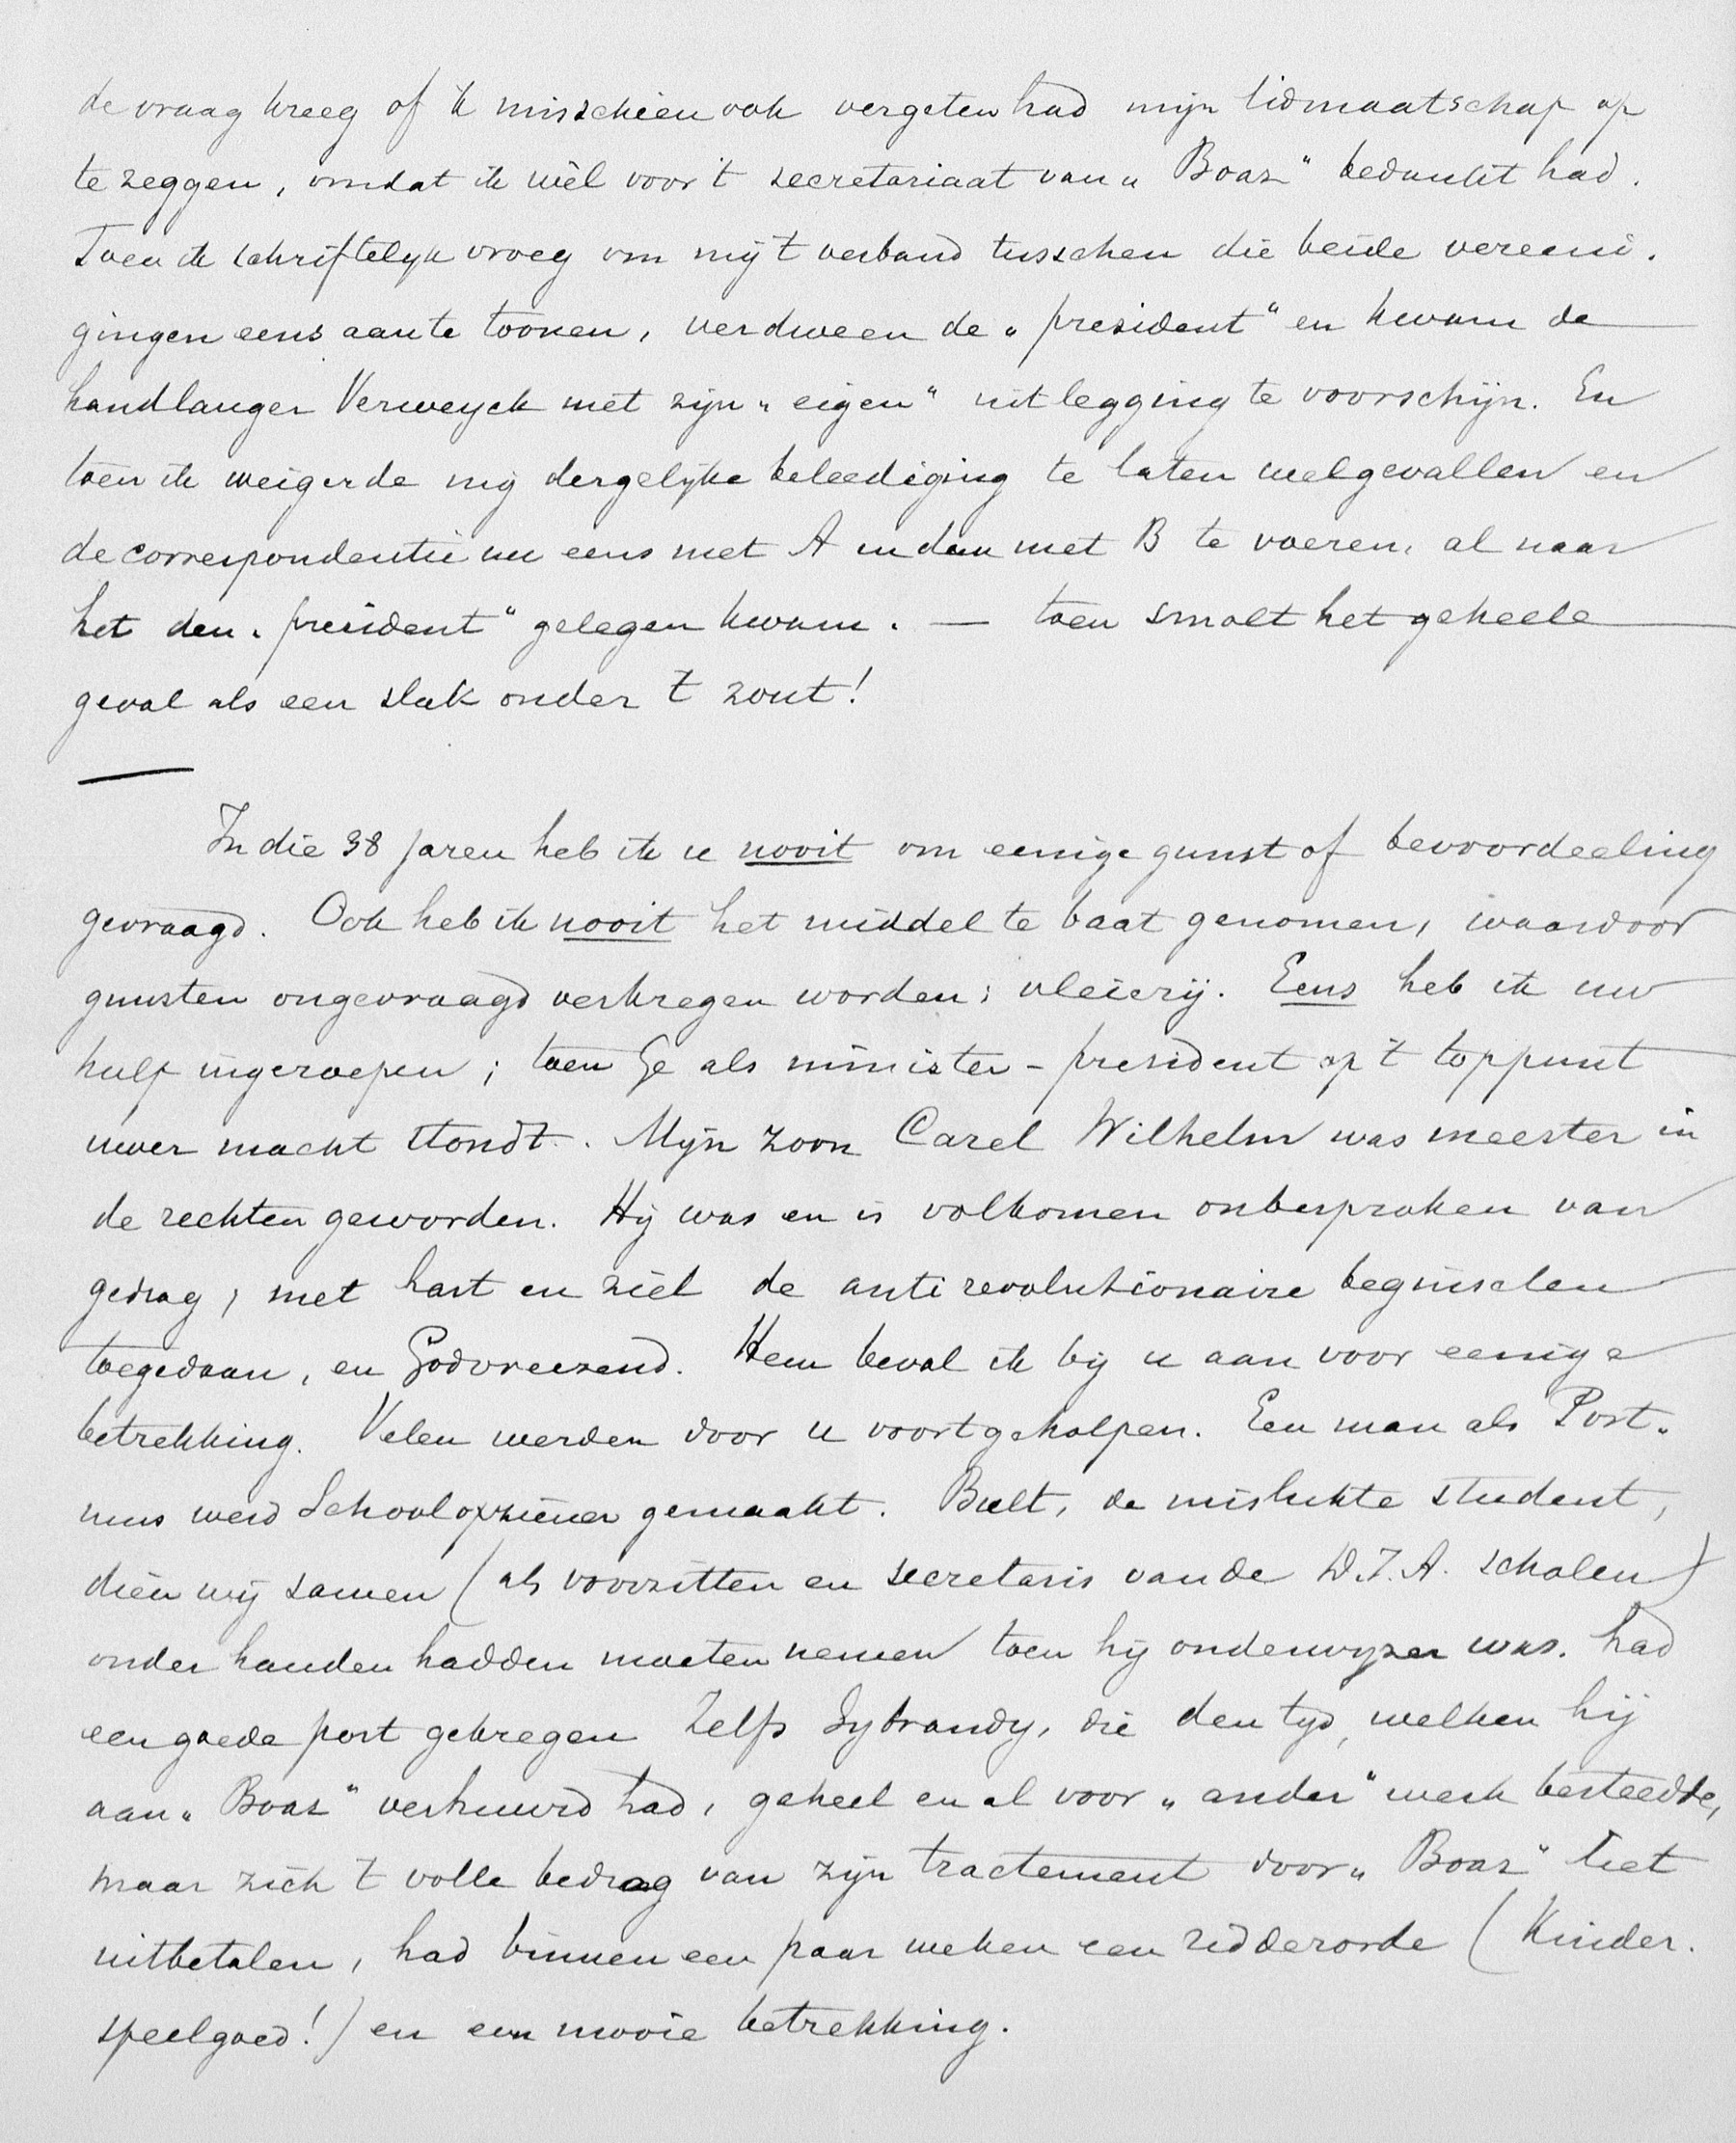 de vraag kreeg of ik misschien ook vergeten had mijn lidmaatschap op
te zeggen, omdat ik wèl voor 't secretariaat van „Boaz" bedankt had.
Toen ik schriftelyk vroeg om mij 't verband tusschen die beide vereeni-
gingen eens aan te toonen, verdween de „president" en kwam de
handlanger Verweyck met zijn „eigen" uitlegging te voorschijn. En
toen ik weigerde mij dergelijke beleediging te laten welgevallen en
de correspondentie nu eens met A en dan met B te voeren, al naar
het den „president" gelegen kwam. — toen smolt het geheele
geval als een slak onder 't zout!
In die 38 jaren heb ik u nooit om eenige gunst of bevoordeeling
gevraagd. Ook heb ik nooit het middel te baat genomen, waardoor
gunsten ongevraagd verkregen worden: vleierij. Eens heb ik uw
hulp ingeroepen; toen Ge als minister-president op 't toppunt
uwer macht stondt. Mijn zoon Carel Wilhelm was meester in
de rechten geworden. Hij was en is volkomen onbesproken van
gedrag, met hart en ziel de antirevolutionaire beginselen
toegedaan, en Godvreezend. Hem beval ik bij u aan voor eenige
betrekking. Velen werden door u voortgeholpen. Een man als Post-
mus werd Schoolopziener gemaakt. Bult, de mislukte student,
dien wij samen (als voorzitter en secretaris van de D.T.A. scholen)
onder handen hadden moeten nemen toen hij onderwijzer was. had
een goede post gekregen Zelfs Sybrandy, die den tijd, welken hij
aan „Boaz" verhuurd had, geheel en al voor „ander" werk besteedde,
maar zich 't volle bedrag van zijn tractement door „Boaz" liet
uitbetalen, had binnen een paar weken een ridderorde (Kinder-
speelgoed!) en een mooie betrekking.